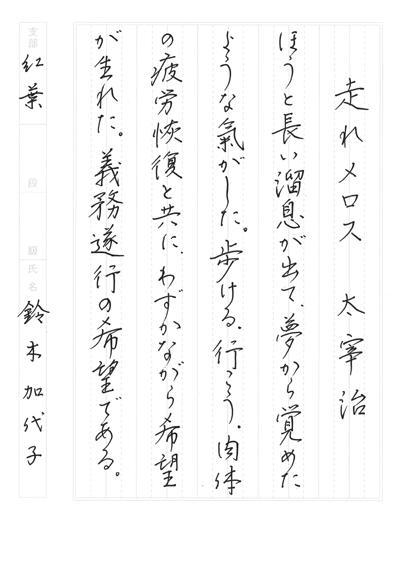 走れメロス　太宰治
ほうと長い溜息が出て、夢から覚めた
ような氣がした。歩ける。行こう。肉体
の疲労恢復と共に、わずかながら希望
が生れた。義務遂行の希望である。
支部 紅葉 段 級 氏名 鈴木加代子